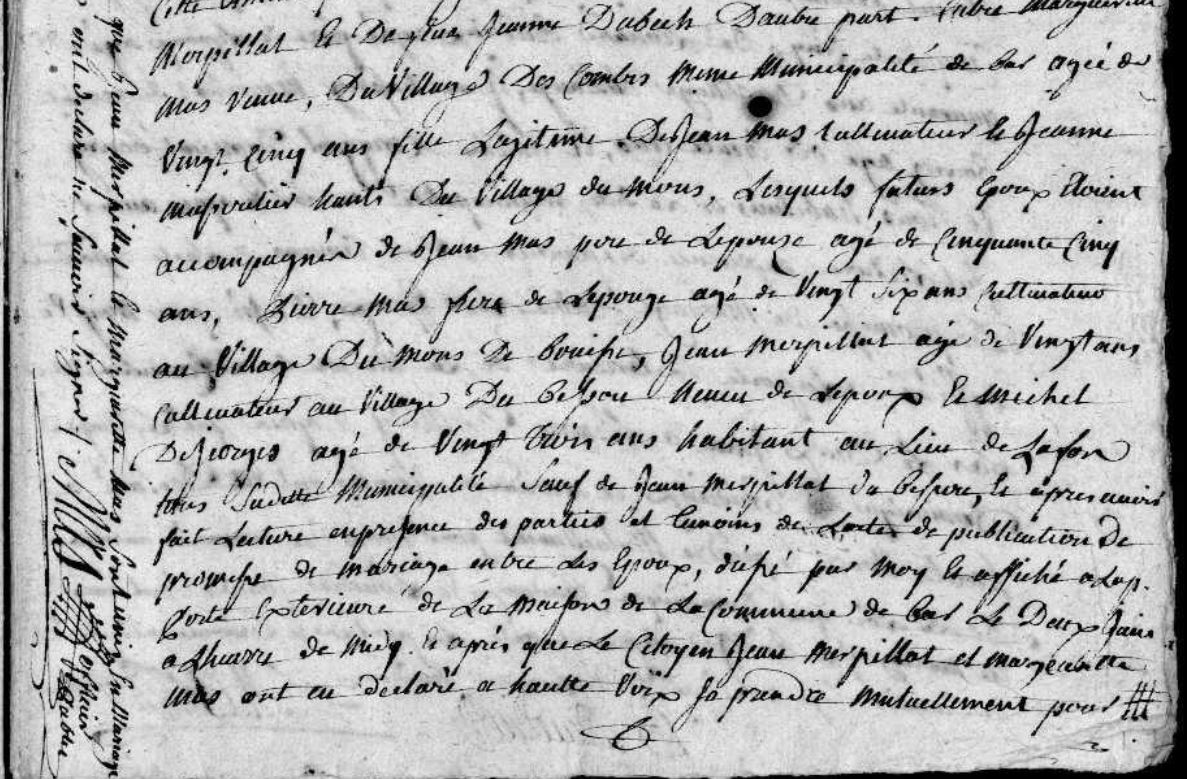 Cette
Merpillat Et De feue Jeanne Dubech Dautre part. Entre Marguerite
Mas veuve, Du Village Des Combes meme Municipalité de bar agée de
Vingt Cinq ans fille Legitime De Jean mas Cultivateur Et Jeanne
hants Du Village du mons, Lesquels futurs Epoux Etoient
accompagnés de Jean Mas pere de Lepouze agé de Cinquante Cinq
ans, Pierre Mas frere de Lepouze agé de Vingt Six ans Cultivateur
au Village Du Mons De, Jean Merpillat agé de Vingt ans
Cultivateur au Village Du bessou neveu de Lepoux Et Michel
DeJeorges agé de Vingt trois ans habitant au Lieu de Lafon
tous Susditte Municipalité Sauf de Jean Merpillat du, Et apres avoir
fait Lecture en presence des parties et temoins de Lacte de publication De
promesse de mariage entre Les Epoux, par Moy Et affiché a Lap.
porte Exterieure de La Maison de La Commune de bar Le Deux Juin
a Lheurre de midy. Et après que Le Citoyen Jean Merpillat et margueritte
Mas ont eu declaré a hautte Voix se prendre Mutuellement pour
que Jean Merpillat Et Margueritte Mas Sont unis En Mariage
ont declare ne Scavoir Signer /. Mas